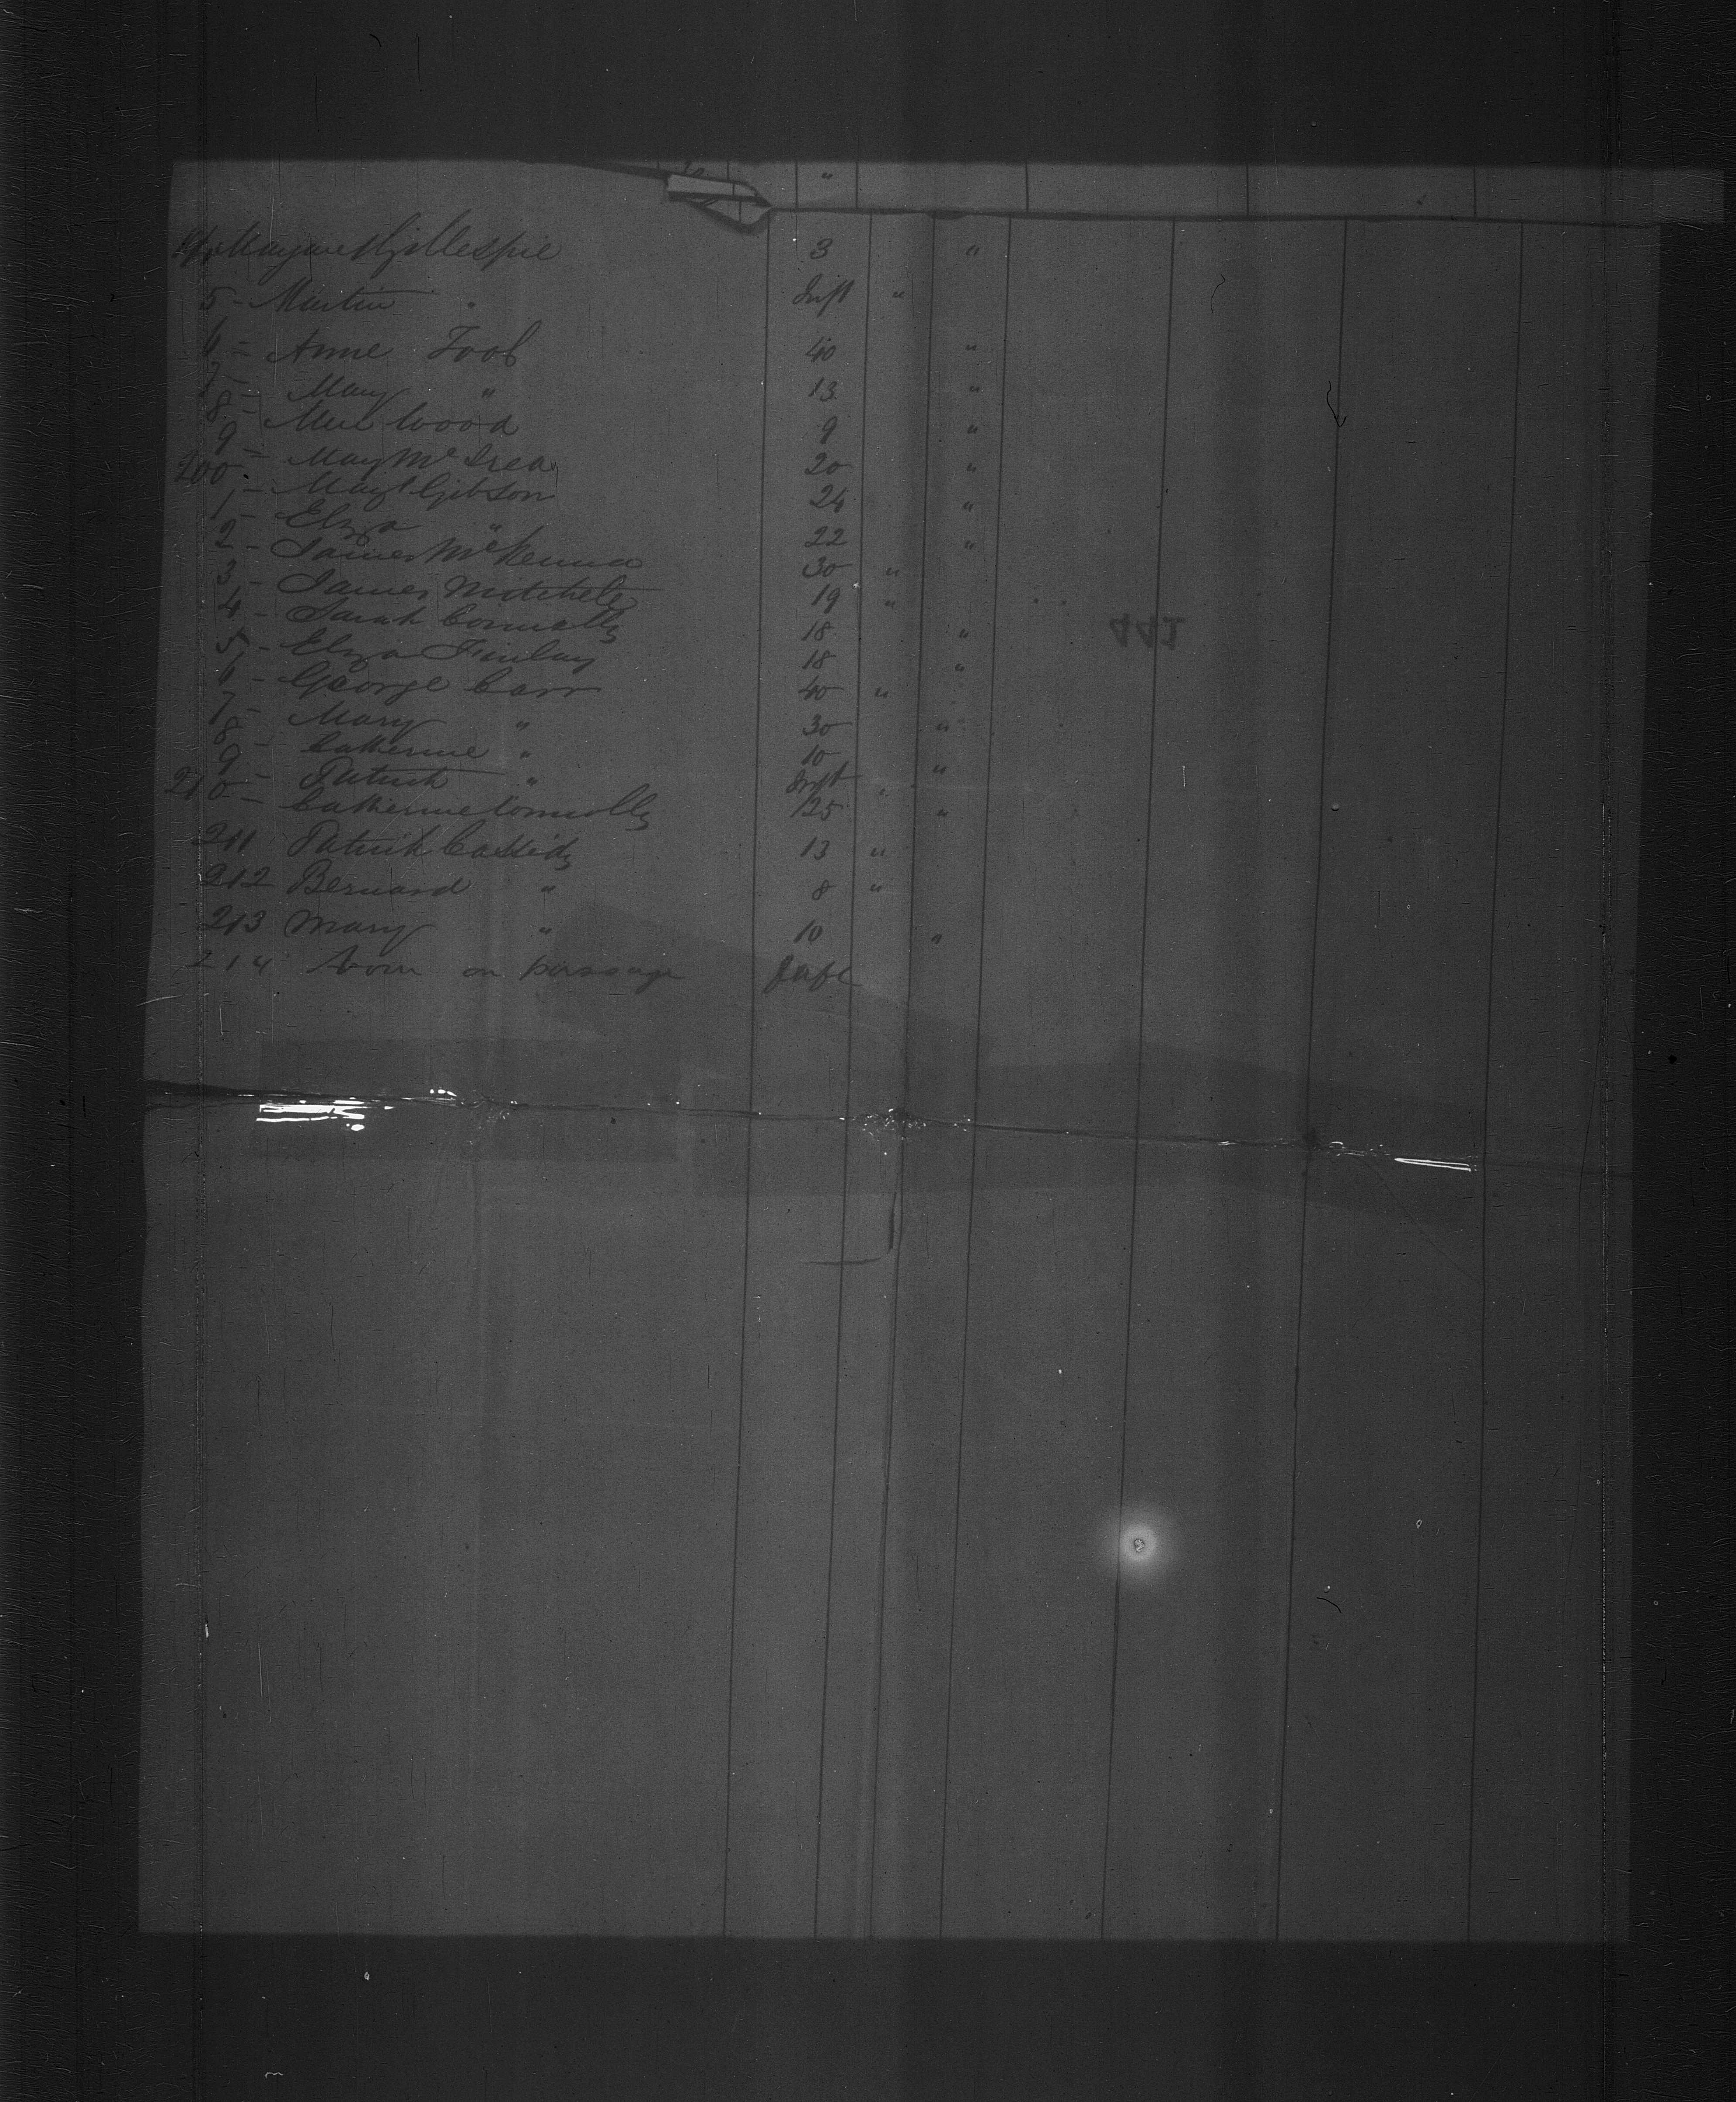 "
Margaret Gillespie 3 "
5 - Martin " Inft "
6 - Anne Fool 40 "
7 - Mary " 13 "
8 - Wood 9 "
9 - Mary 20 "
200 - Margt Gibson 24 "
1 - Eliza " 22 "
2 - James McKenna 30 "
3 - James Mitchele 19 "
4 - Sarah Connolly 18 "
5 - Eliza Finlay 18 "
6 - George Carr 40 "
7 - Mary " 30 "
8 - Catherine " 10 "
9 - Patrick " Inft "
210 - Catherine Connolly 25 "
211 Patrick Cassidy 13 "
212 Bernard " 8 "
213 Mary " 10 "
214 born on passage Inft
442